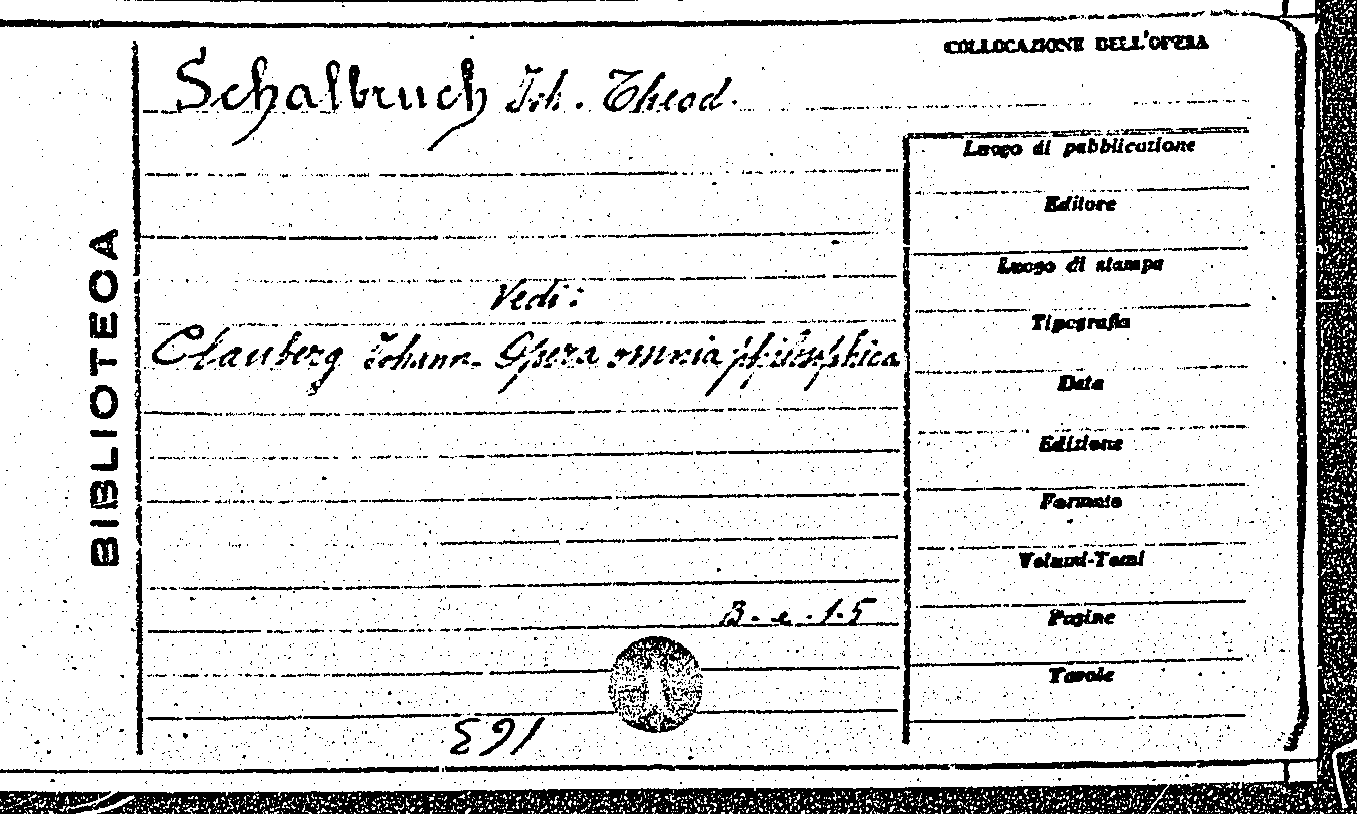 COLLOCAZIONE DELL'OPERA
Schalbruch Joh. Theod.
BIBLIOTECA
Vedi:
Clauberg Johann. Opera omnia philosophica
B. e. 1. 5
Luogo di pubblicazione
Editore
Luogo di stampa
Tipografia
Data
Edizione
Formato
Volumi-Tomi
Pagine
Tavole